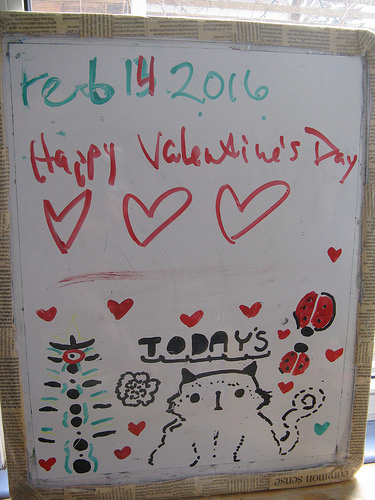 Feb 14 2016
Happy Valentine's Day
TODAY'S
common sense